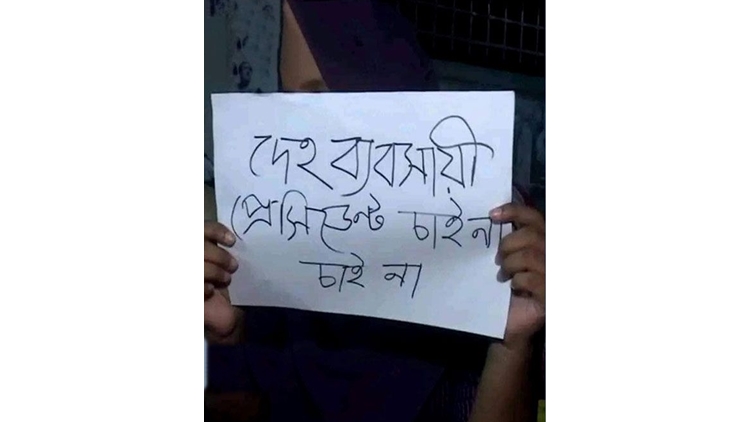 দেহ ব্যবসায়ী
প্রেসিডেন্ট চাই না
চাই না